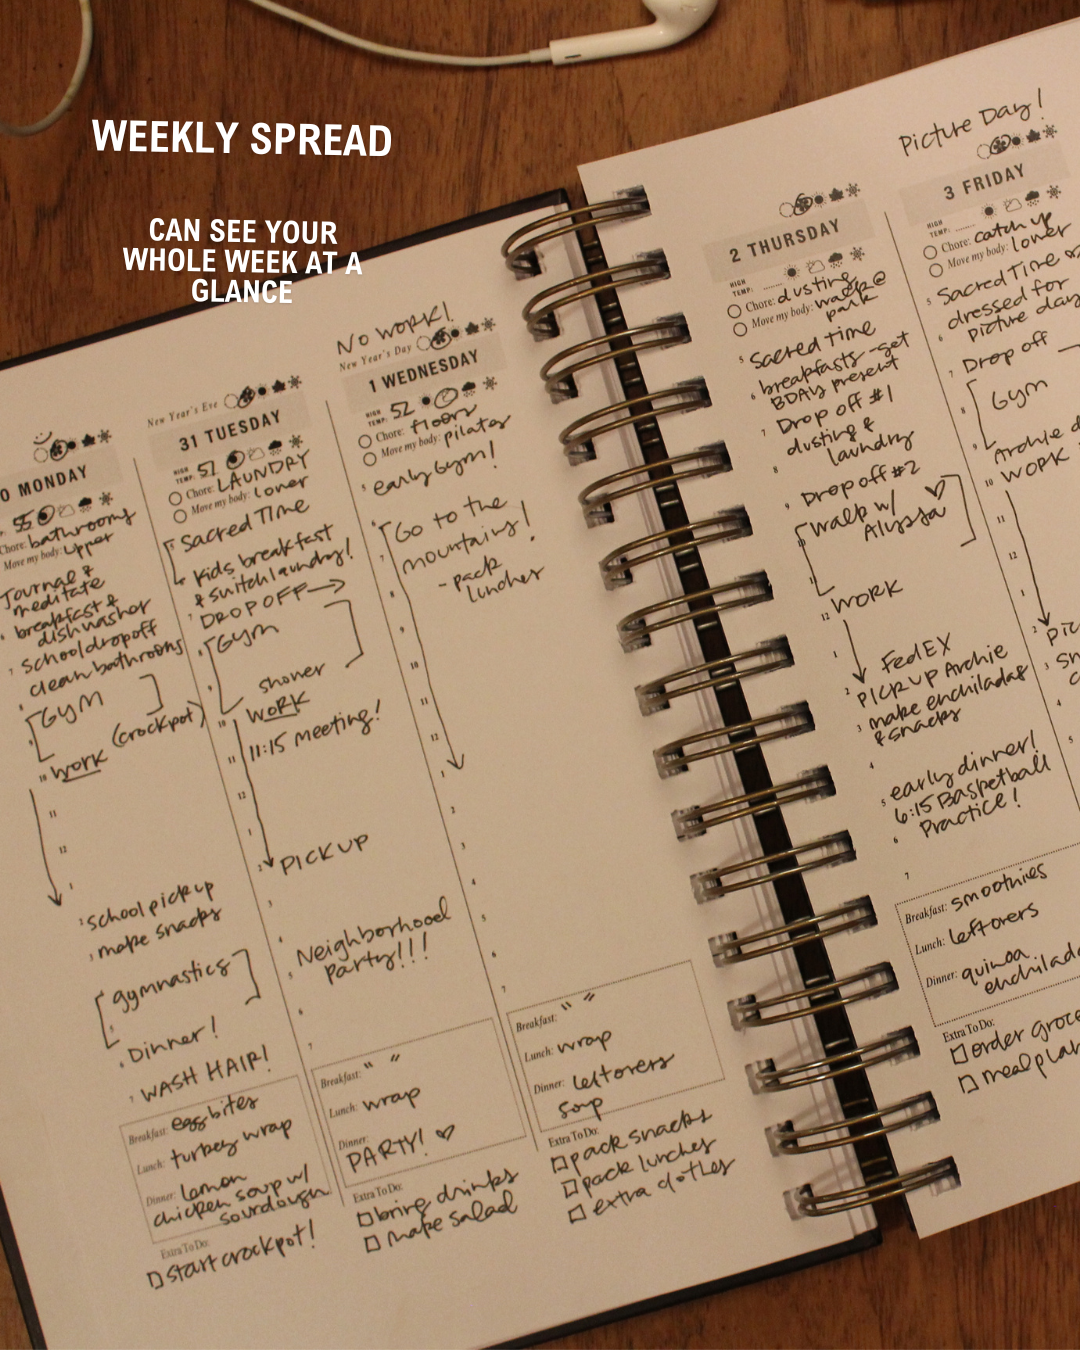 WEEKLY SPREAD
CAN SEE YOUR
WHOLE WEEK AT A
GLANCE
0 MONDAY
55
Chore: bathrooms
Move my body: upper
Journal &
meditate
6 breakfast &
dishwasher
7 school dropoff
clean bathrooms
8
GYM
9
(crockpot)
10 work
11
12
1
2 school pickup
3 make snacks
gymnastics
5
6 Dinner!
7 WASH HAIR!
Breakfast: egg bites
Lunch: turkey wrap
Dinner: lemon
chicken soup w/
sourdough
Extra To Do:
start crockpot!
New Year's Eve
31 TUESDAY
HIGH
TEMP: 51
Chore: LAUNDRY
Move my body: lower
5 Sacred Time
6 kids breakfast
& switch laundry!
7 DROP OFF
8 Gym
9
shower
10 WORK
11 11:15 meeting!
12
1
2 PICKUP
3
4
Neighborhood
5 Party!!!
6
7
Breakfast: " "
Lunch: wrap
Dinner:
PARTY!
Extra To Do:
bring drinks
make salad
NO WORK!
New Year's Day
1 WEDNESDAY
HIGH
TEMP: 52
Chore: floors
Move my body: pilates
5 early Gym!
6 Go to the
7 mountains!
- pack
8 lunches
9
10
11
12
1
2
3
4
5
6
7
Breakfast: " "
Lunch: wrap
Dinner: leftovers
soup
Extra To Do:
pack snacks
pack lunches
extra clothes
2 THURSDAY
HIGH
TEMP:
Chore: dusting
Move my body: walk @
park
5 Sacred Time
breakfasts - get
6 BDAY present
7 Drop off #1
dusting &
8 laundry
9 Drop off #2
walk w/
10 Alyssa
11
12 WORK
1
FedEX
2 PICKUP Archie
3 make enchiladas
& snacks
4
5 early dinner!
6:15 Basketball
6 Practice!
7
Breakfast: smoothies
Lunch: leftovers
Dinner: quinoa
enchilada
Extra To Do:
order groce
meal plan
Picture Day!
3 FRIDAY
HIGH
TEMP:
Chore: catch up
Move my body: lower
5 Sacred Time
dressed for
6 picture day
7 Drop off
8 Gym
9
Archie
10 WORK
11
12
1
2 PIC
3
4
5